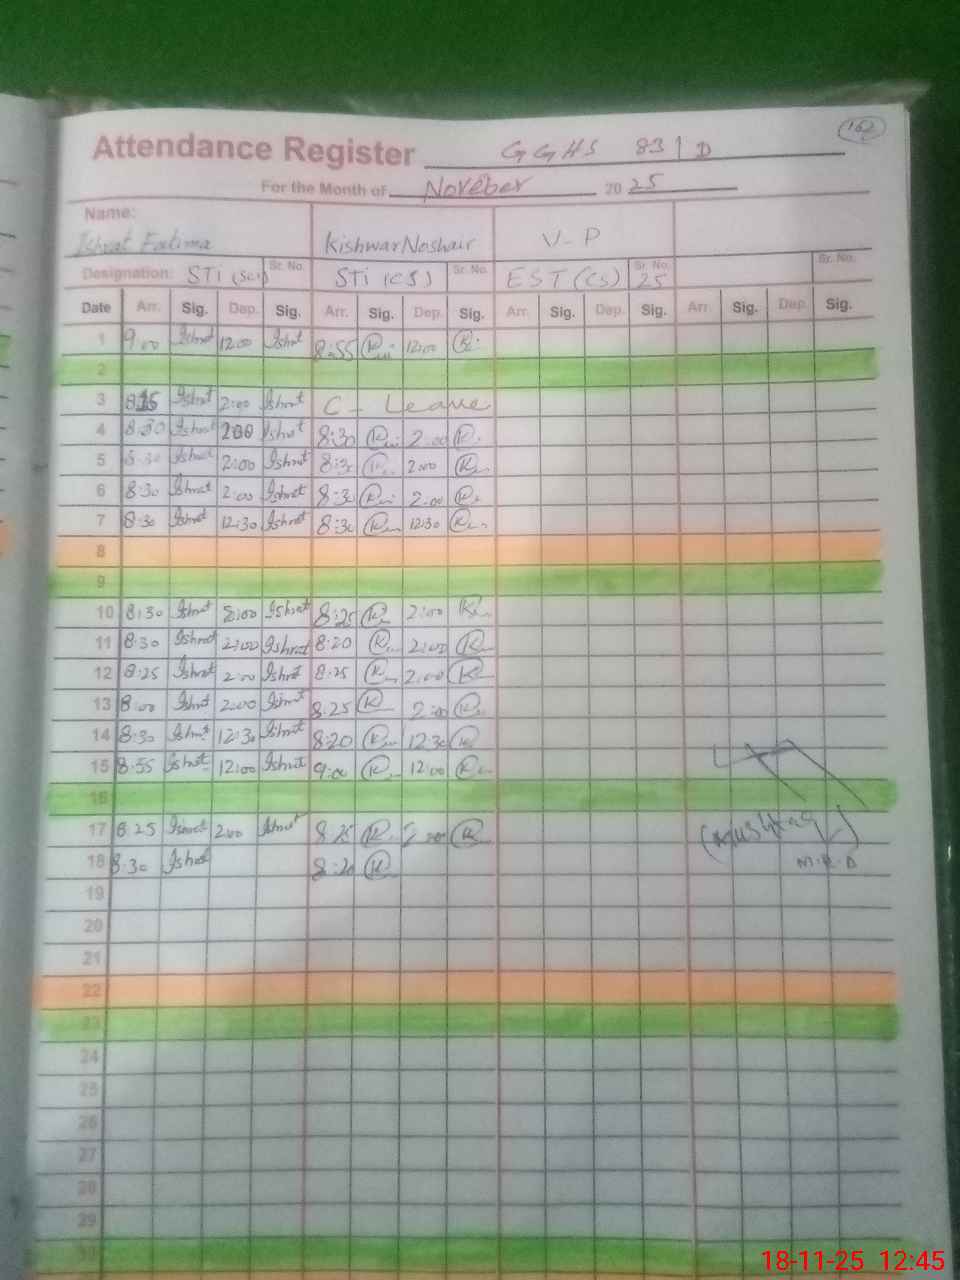 162
Attendance Register GGHS 83/D
For the Month of Noveber 2025
Name:
Ishrat Fatima Kishwar Noshair V-P
Designation: STI (Sci) Sr. No. STI (CS) Sr. No. EST (CS) Sr. No. 25 Sr. No.
Date Arr. Sig. Dep. Sig. Arr. Sig. Dep. Sig. Arr. Sig. Dep. Sig. Arr. Sig. Dep. Sig.
1 9:00 Ishrat 12:00 Ishrat 8:55 12:00
2
3 Ishrat 2:00 Ishrat C - Leave
4 8:30 Ishrat 200 Ishrat 8:30 2:00
5 8:30 Ishrat 2:00 Ishrat 8:30 2:00
6 8:30 Ishrat 2:00 Ishrat 8:30 2:00
7 8:30 Ishrat 12:30 Ishrat 8:30 12:30
8
9
10 8:30 Ishrat 2:00 Ishrat 8:25 2:00
11 8:30 Ishrat 2:00 Ishrat 8:20 2:00
12 8:25 Ishrat 2:00 Ishrat 8:25 2:00
13 8:00 Ishrat 2:00 Ishrat 8:25 2:00
14 8:30 Ishrat 12:30 Ishrat 8:20 12:30
15 8:55 Ishrat 12:00 Ishrat 9:00 12:00
16
17 8:25 Ishrat 2:00 Ishrat 8:25 2:00
18 8:30 Ishrat 8:20
19
20
21
22
23
24
25
26
27
28
29
30
18-11-25 12:45